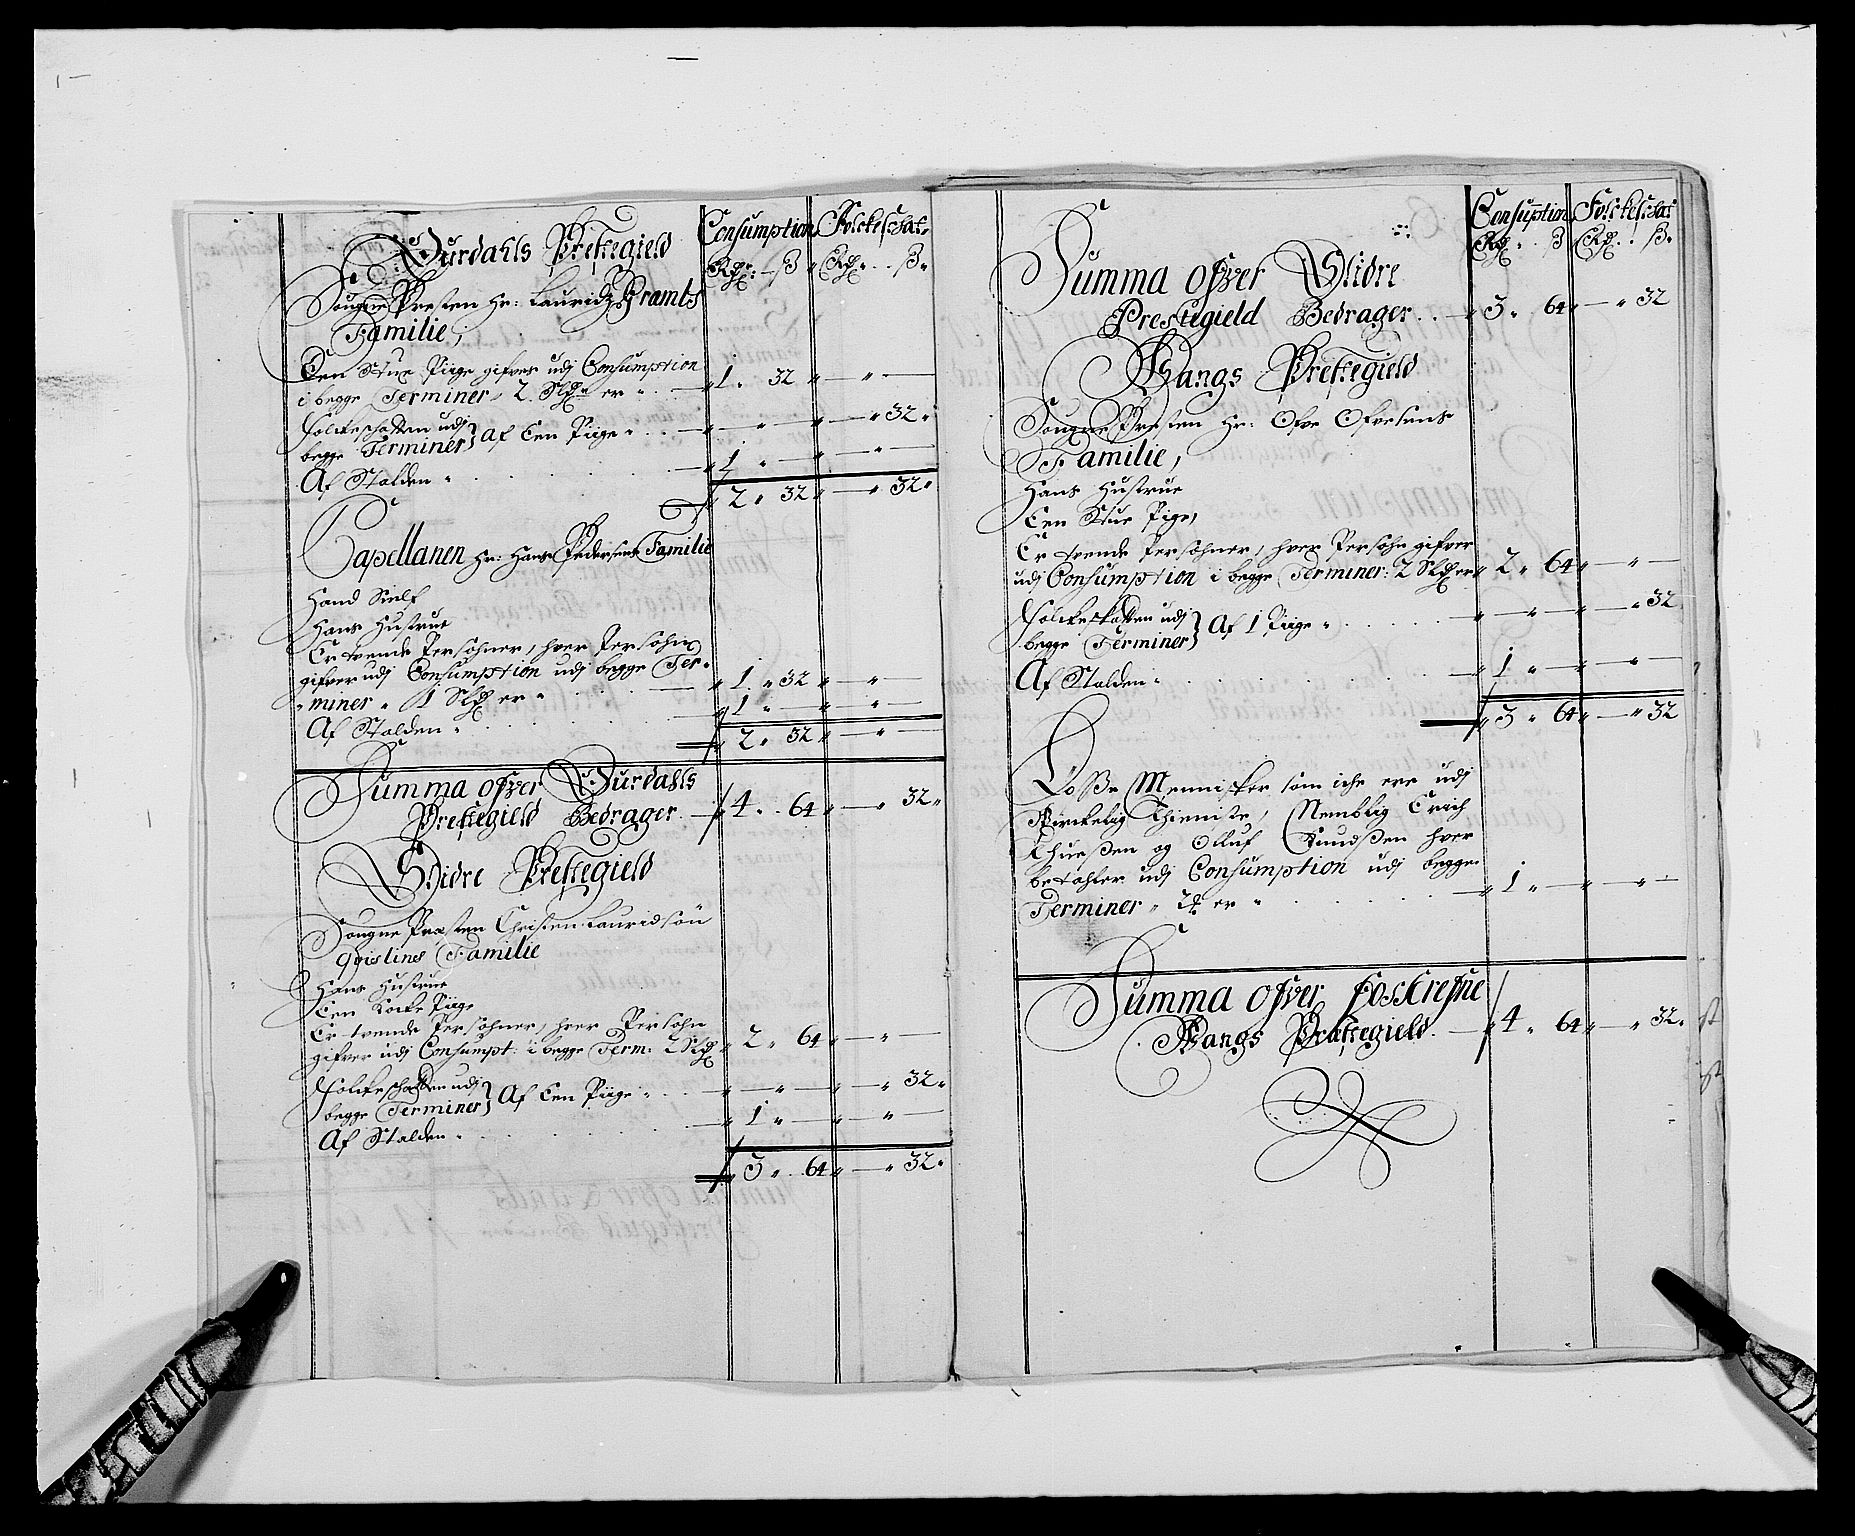 Consumption Folckeschat
Rdr: ß Rdr: ß
Aurdahls Prestegield
Sougne Presten Hr: Lauridz Bramts
Familie,
Een Stue Piige gifver udj Consumption
i begge Terminer 2 Rdr er " 1 " 32 " — " —
Folckeschatten udj
begge Terminer } Af Een Piige " — " — " — " 32 "
Af Stalden " 1 " — " — " —
2 " 32 " — " 32 "
Capellanen Hr: Hans Pedersens Familie
Hand Sielf
Hans Hustrue
Er tvende Persohner, hver Persohn
gifver udj Consumption udj begge Ter-
miner " 1 er " 1 " 32 " — " —
Af Stalden " 1 " — " — " —
2 " 32 " — " —
Summa ofver Aurdahls
Prestegield Bedrager 4 " 64 " — " 32 "
Slidre Prestegield
Sougne Præsten Christen Lauridsön
Qvislines Familie
Hans Hustrue
Een Kocke Piige
Er tvende Persohner, hver Persohn
gifver udj Consumpt: i begge Term: 2 2 " 64 " — " —
Folckeschatten udj
begge Terminer } Af Een Piige " — " — " — " 32 "
Af Stalden " 1 " — " — " —
3 " 64 " — " 32 "
Consumption Folckeschat
Rdr ß Rdr ß
Summa ofver Slidre
Prestegield Bedrager 3 " 64 " — " 32
Wangs Prestegield
Sougne Presten Hr: Ofve Ofvesens
Familie,
Hans Hustrue
Een Stue Pige,
Er tvende Persohner, hver Persohn gifver
udj Consumption i begge Terminer: 2 er 2 " 64 " — " —
Folckeskatten udj
begge Terminer } Af 1 Piige " — " — " — " 32
Af Stalden " 1 " — " — " —
3 " 64 " — " 32
Løsse Mennisker som iche ere udj
Virckelig Thieniste, Nemblig Erich
Thuessen og Olluf Knudssen hver
betahler udj Consumption udj begge
Terminer " er " 1 " — " — " —
Summa ofver foschrefne
Wangs Prestegield 4 " 64 " — " 32 "